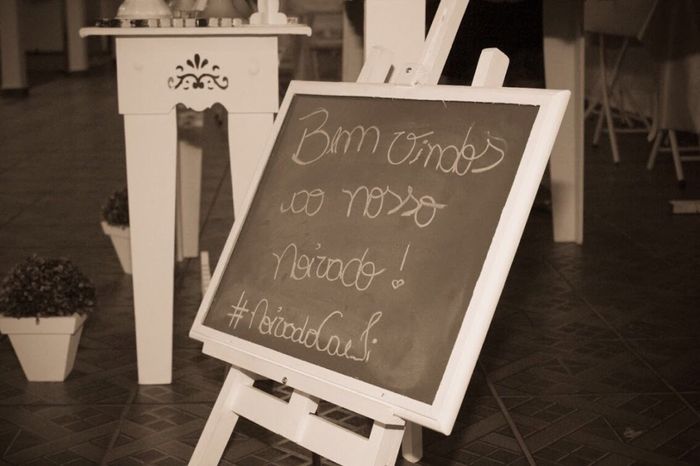 Bem vindos
ao nosso
noivado!
#NoivadoCaeSi